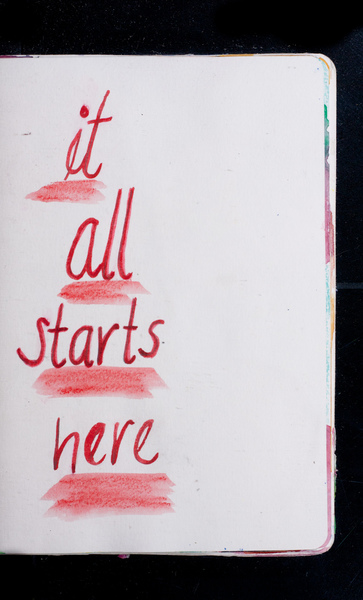 it
all
starts
here